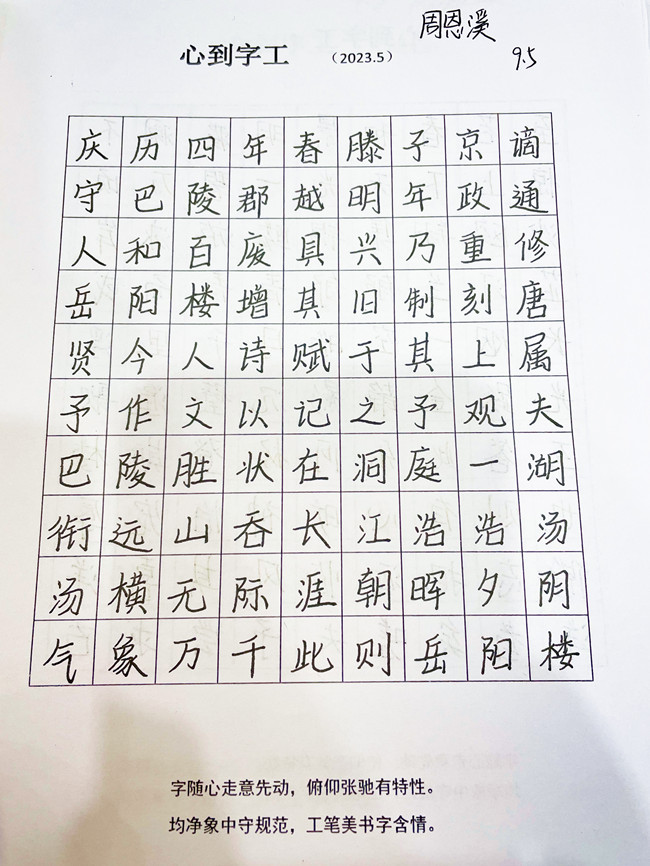 周恩溪
心到字工 （2023.5） 9.5
庆历四年春滕子京谪
守巴陵郡越明年政通
人和百废具兴乃重修
岳阳楼增其旧制刻唐
贤今人诗赋于其上属
予作文以记之予观夫
巴陵胜状在洞庭一湖
衔远山吞长江浩浩汤
汤横无际涯朝晖夕阴
气象万千此则岳阳楼
字随心走意先动，俯仰张驰有特性。
均净象中守规范，工笔美书字含情。